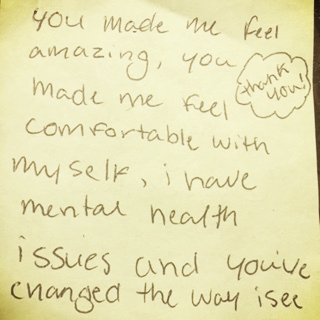 you made me feel
amazing, you
thank
you!
made me feel
comfortable with
myself, i have
mental health
issues and you've
changed the way i see